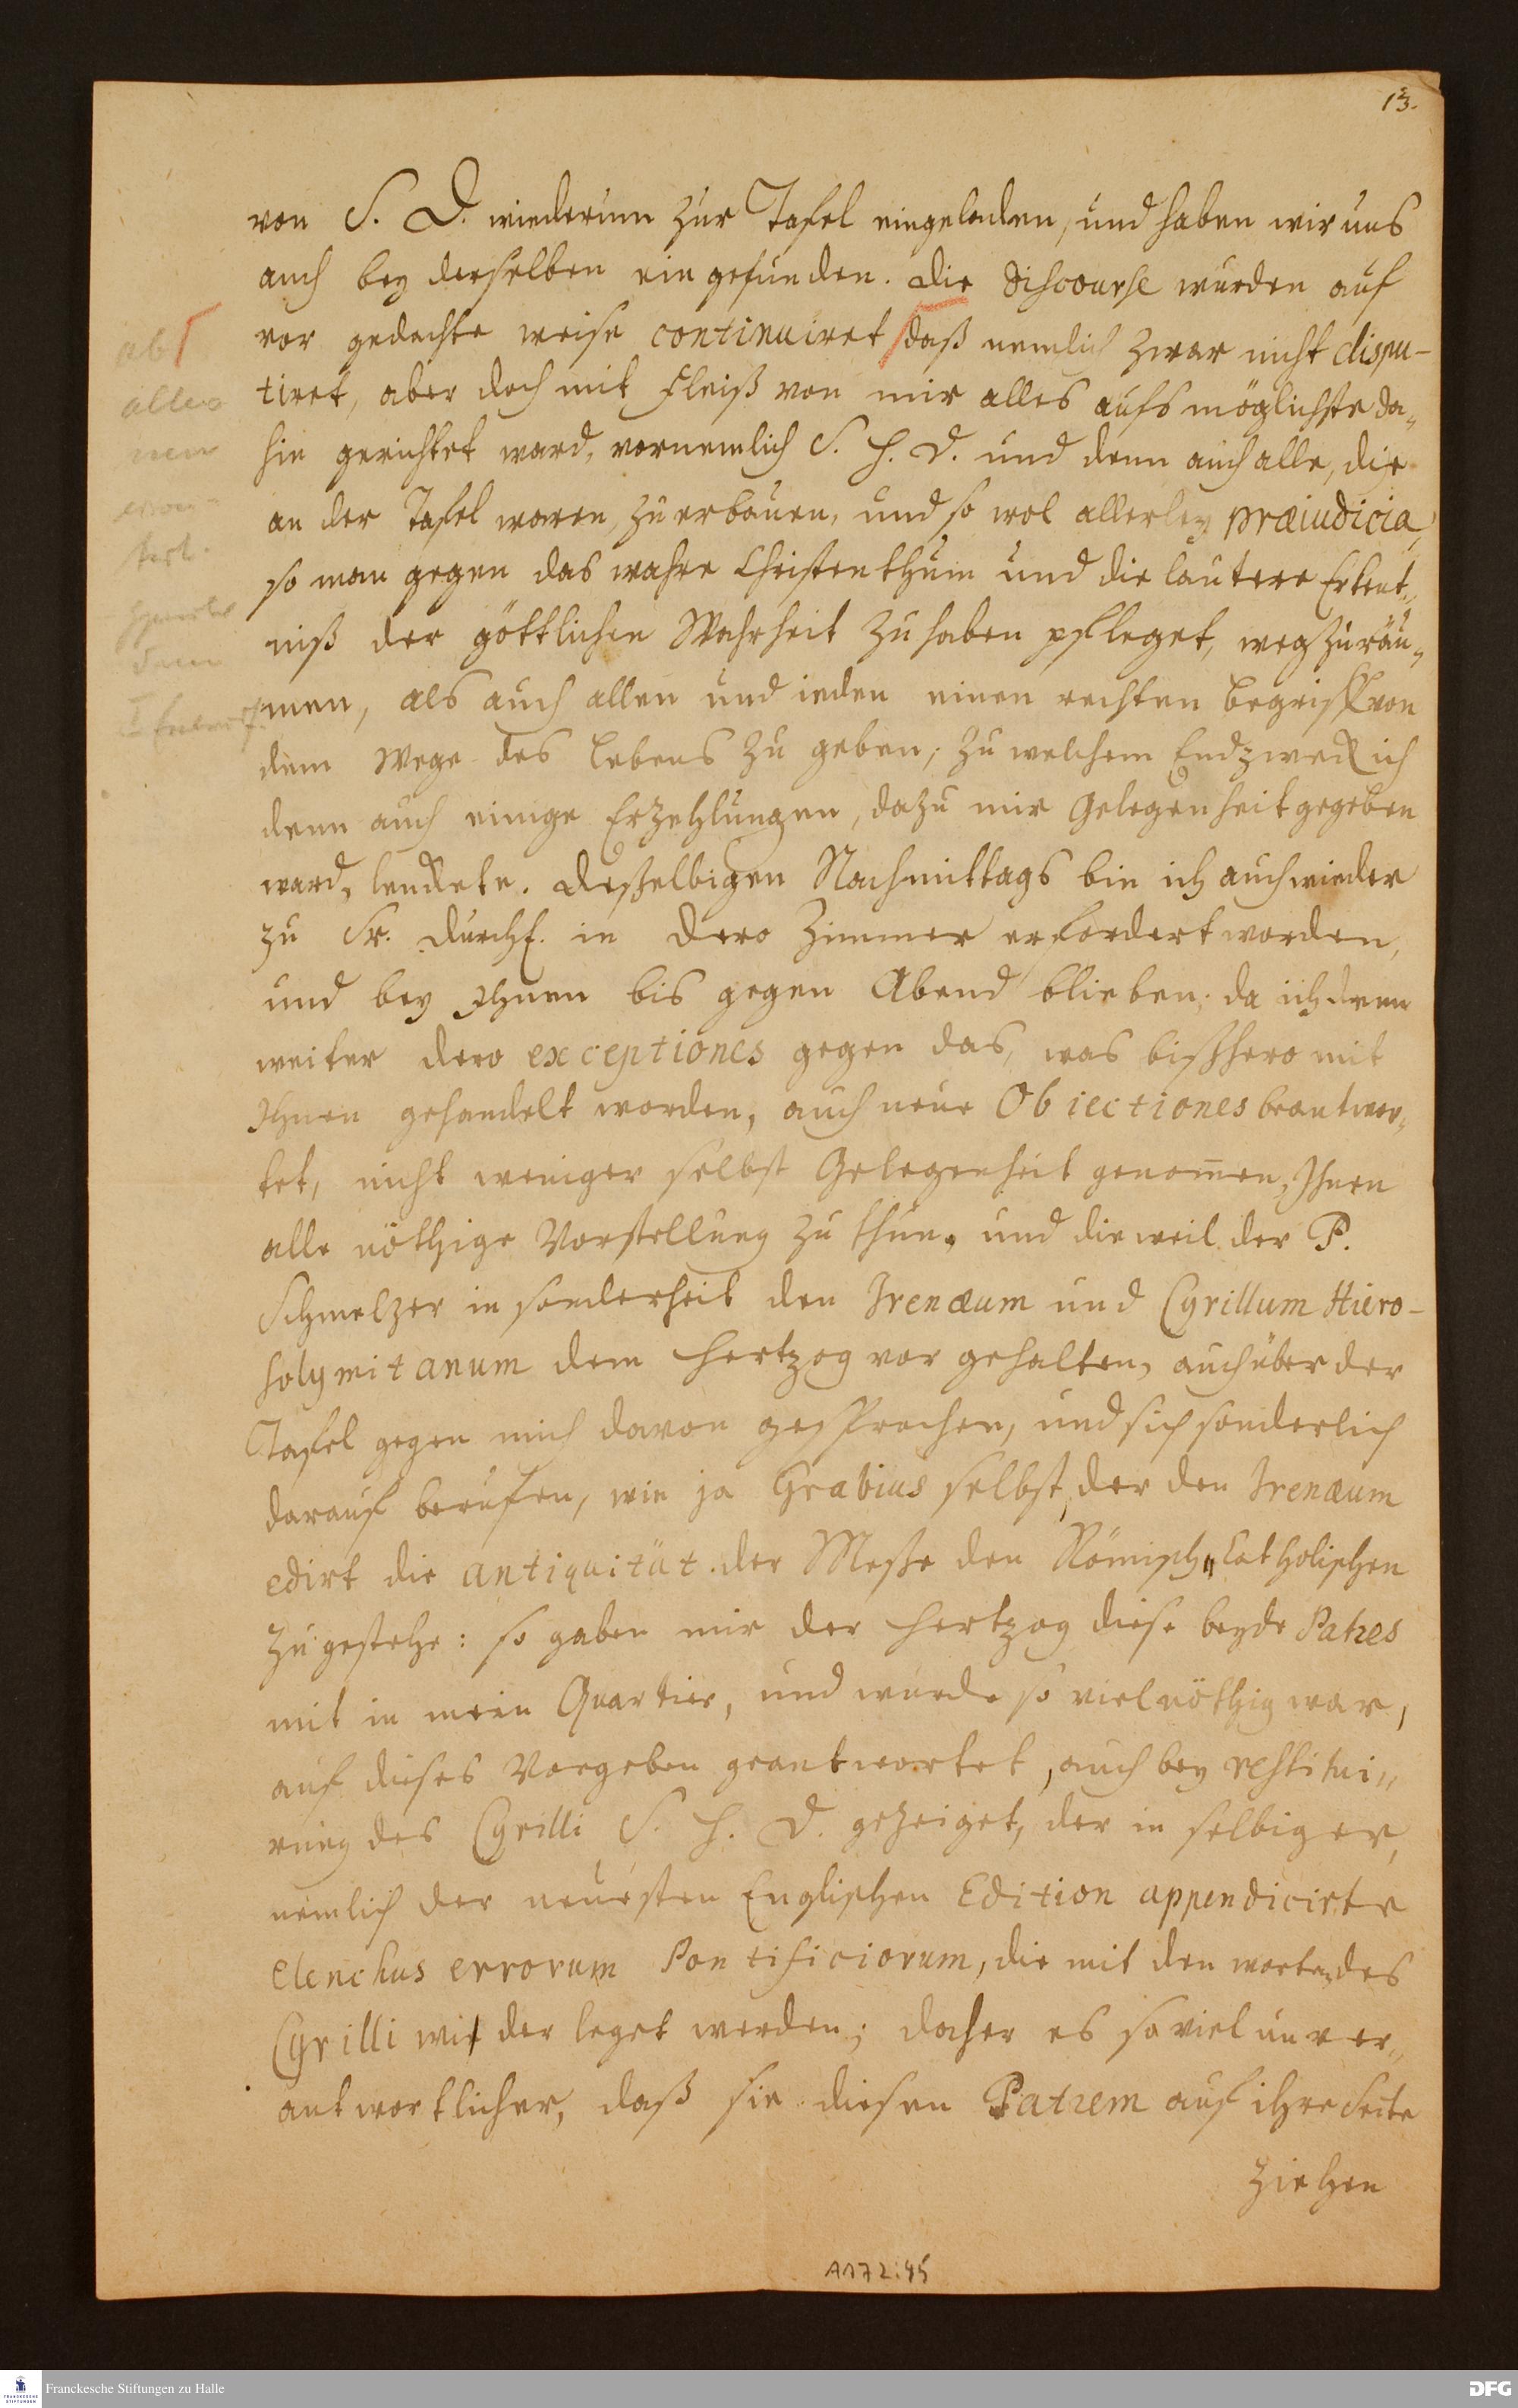 13.
von S. D. wiederum zur Tafel eingeladen, und haben wir uns
auch bey derselben eingefunden. Die Discourse wurden auf
vor gedachte weise continuiret daß nemlich zwar nicht dispu-
tiret, aber doch mit Fleiß von mir alles aufs möglichste da-
hin gerichtet ward, vornemlich S. H. D. und denn auch alle, die
an der Tafel waren, zu erbauen, und so wol allerley præiudicia,
so man gegen das wahre Christenthum und die lautere Erkent-
niß der göttlichen Wahrheit zu haben pfleget, weg zu räu-
men, als auch allen und ieden einen rechten begriff von
dem Wege des Lebens zu geben, zu welchem Endzweck ich
denn auch einige Erzehlungen, dazu mir Gelegenheit gegeben
ward, lenckete. Desselbigen Nachmittags bin ich auch wieder
zu Sr. Durchl. in Dero Zimmer erfordert worden,
und bey Ihnen bis gegen Abend blieben; da ich denn
weiter dero exceptiones gegen das, was bißhero mit
Ihnen gehandelt worden, auch neue Obiectiones beantwor-
tet, nicht weniger selbst Gelegenheit genom̄en, Ihnen
alle nöthige Vorstellung zu thun. und dieweil der P.
Schmelzer in sonderheit den Irenæum und Cyrillum Hiero-
solymitanum dem Hertzog vor gehalten, auch über der
Tafel gegen mich davon gesprochen, und sich sonderlich
darauf beruffen, wie ja Grabius selbst, der den Irenæum
edirt die antiquität der Messe den Römisch-Catholischen
zugestehe: so gaben mir der Hertzog diese beyde Patres
mit in mein Quartier, und wurde so viel nöthig war,
auf dieses Vorgeben geantwortet, auch bey restitui-
rung des Cyrilli S. H. D. gezeiget, der in selbiger,
nemlich der neuesten Englischen Edition appendicirte
elenchus errorum Pontificiorum, die mit den worten des
Cyrilli wiederleget werden; daher es so viel unver-
antwortlicher, daß sie diesen Patrem auf ihre Seite
ziehen
A172:45
Franckesche Stiftungen zu Halle
DFG